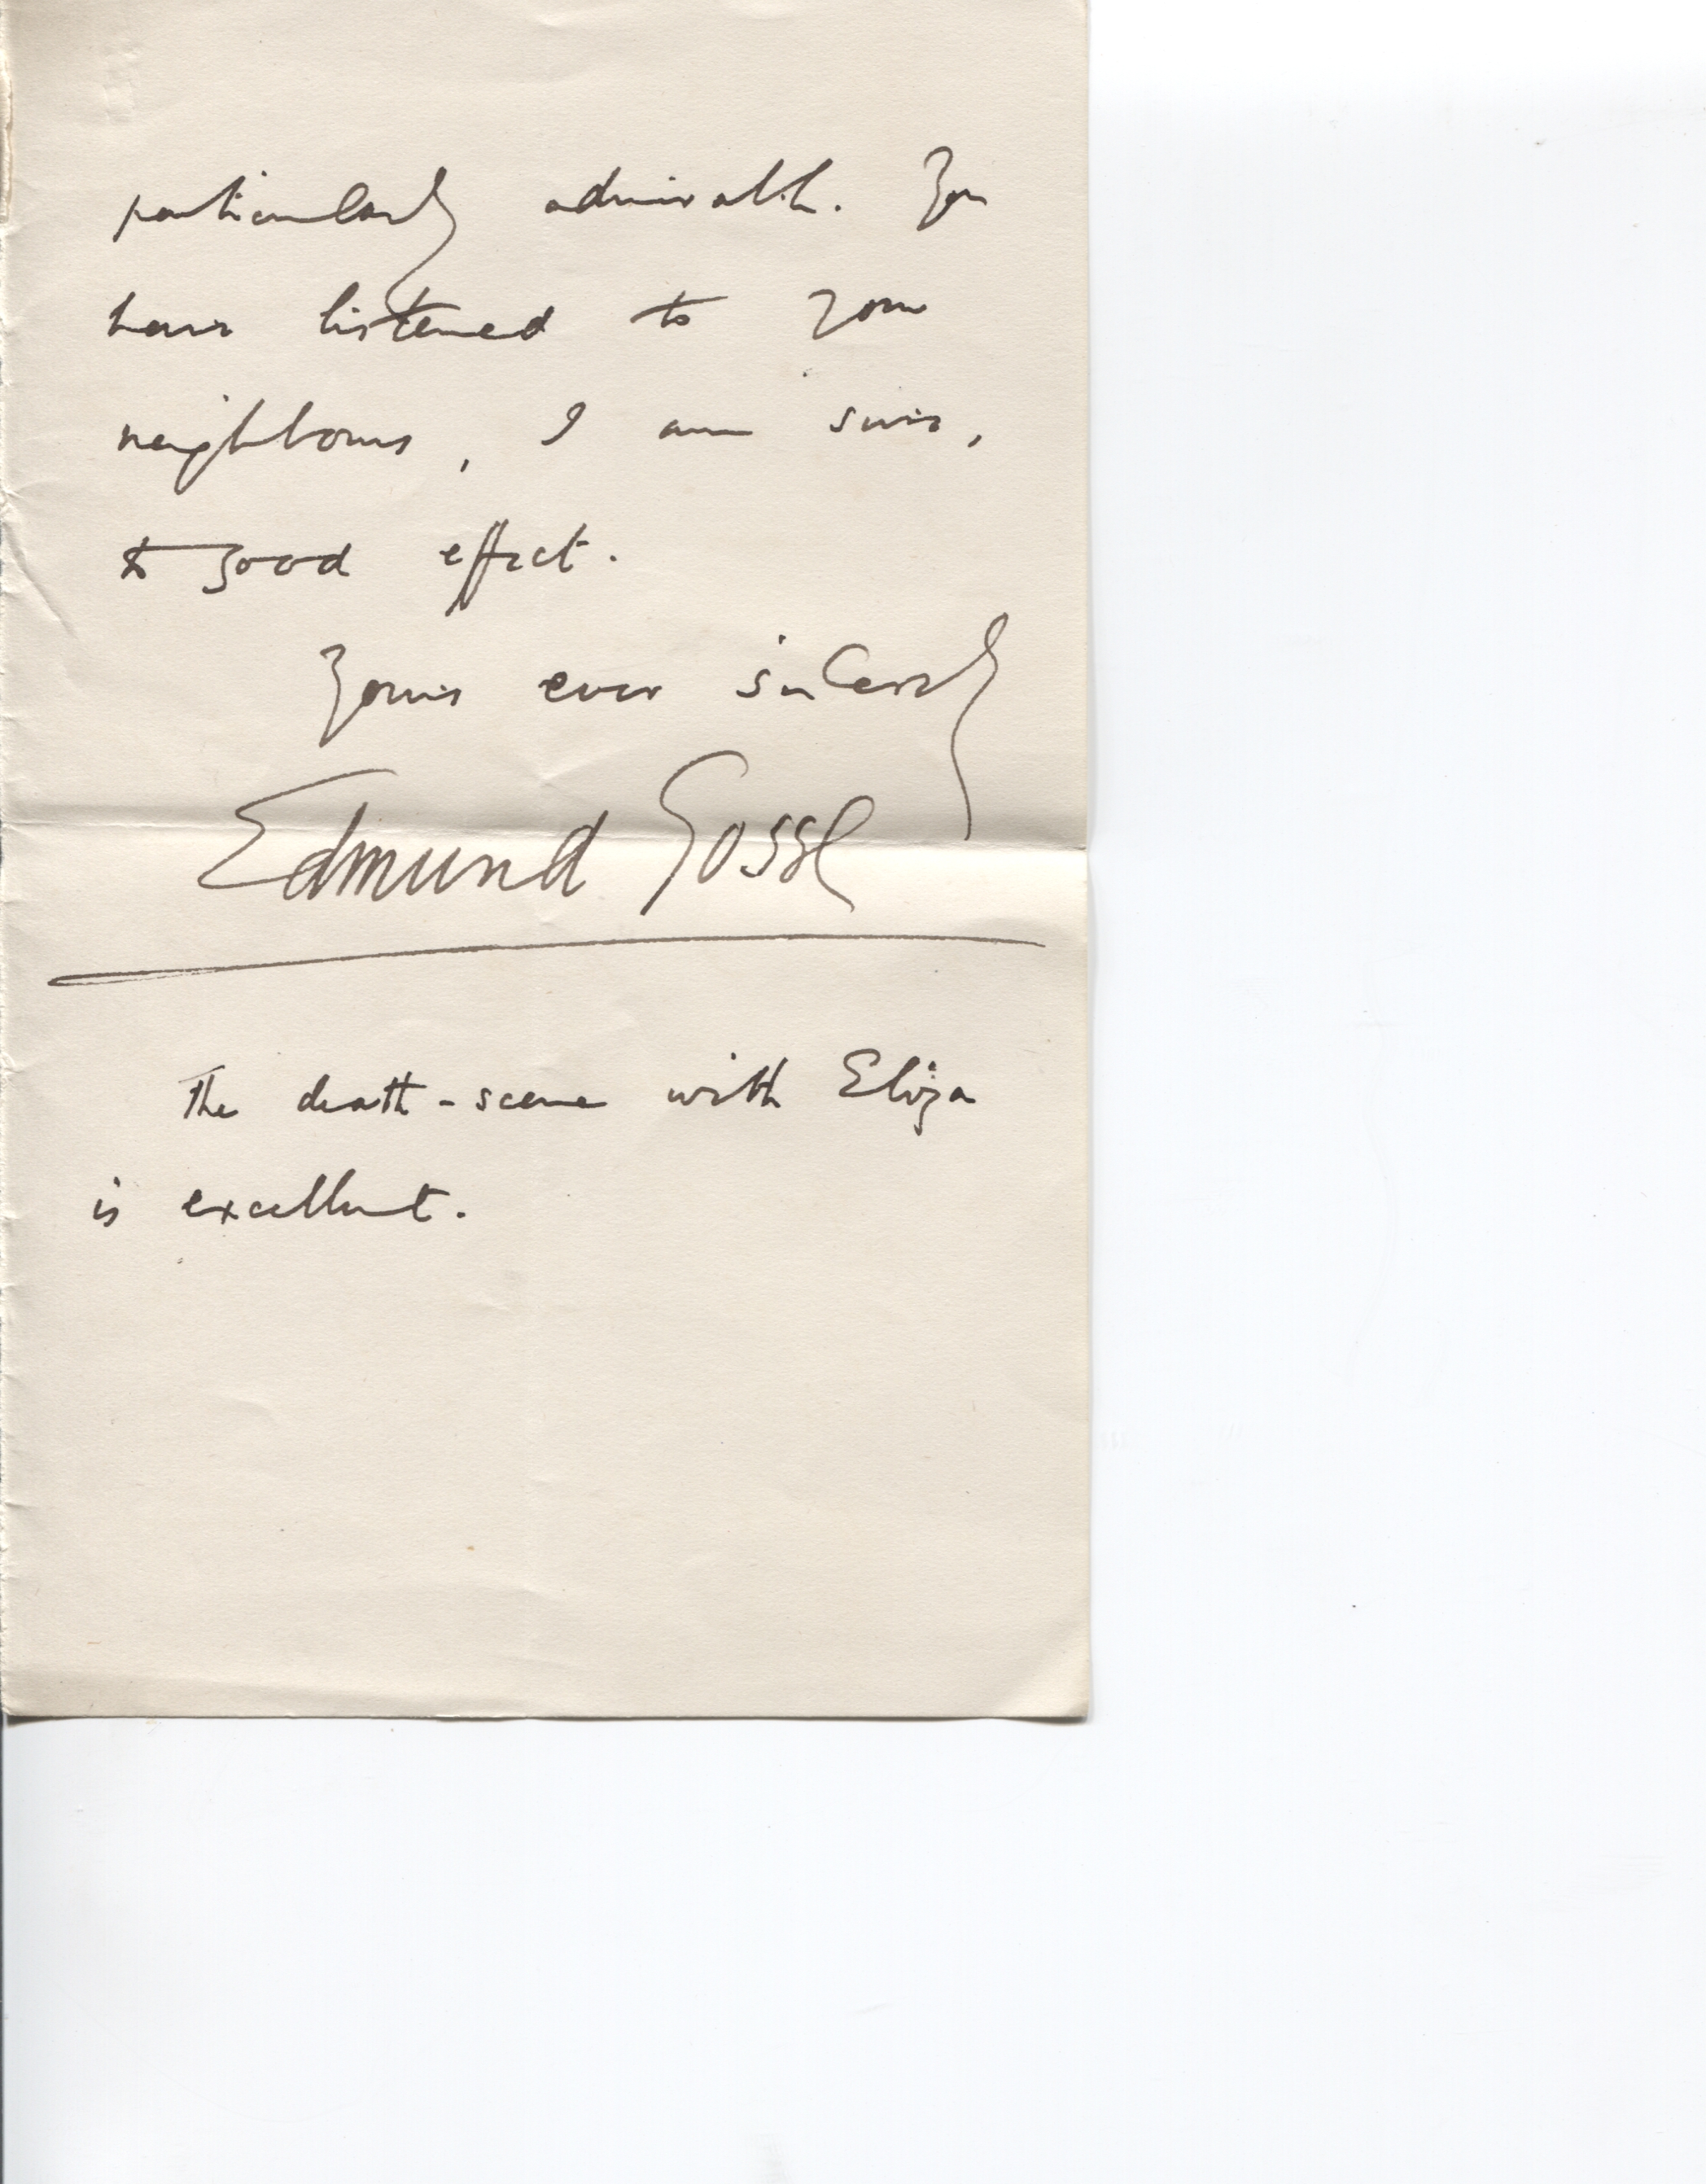 particularly admirable. You
have listened to your
neighbours, I am sure,
to good effect.
Yours ever sincerely
Edmund Gosse
The death-scene with Eliza
is excellent.